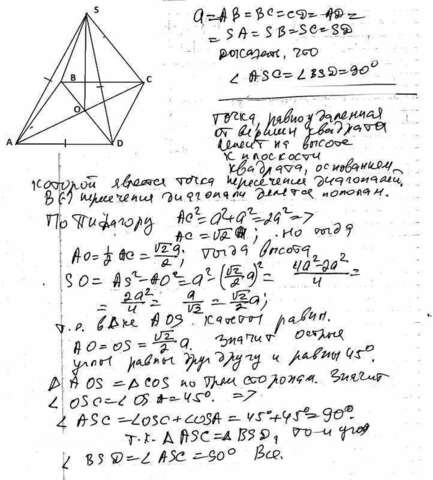 S
B
C
O
A
D
a = AB = BC = CD = AD =
= SA = SB = SC = SD
доказать, что
∠ ASC = ∠ BSD = 90°
Точка, равноудаленная
от вершин квадрата
лежит на высоте
к плоскости
квадрата, основанием
которой является точка пересечения диагоналей.
В (·) пересечения диагонали делятся пополам.
По Пифагору AC² = a² + a² = 2a² =>
AC = √2 a; Но тогда
AO = ½ AC = √2/2 a; тогда высота
SO = AS² - AO² = a² - (√2/2 a)² = 4a² - 2a²/4 =
= 2a²/4 = a/√2 = √2/2 a;
т.о. в Δке AOS катеты равны.
AO = OS = √2/2 a. Значит острые
углы равны друг другу и равны 45°.
Δ AOS = Δ COS по трем сторонам. Значит
∠ OSC = ∠ OSA = 45°. =>
∠ ASC = ∠OSC + ∠OSA = 45° + 45° = 90°.
т.к. Δ ASC = Δ BSD, то и угол
∠ BSD = ∠ ASC = 90° Все.